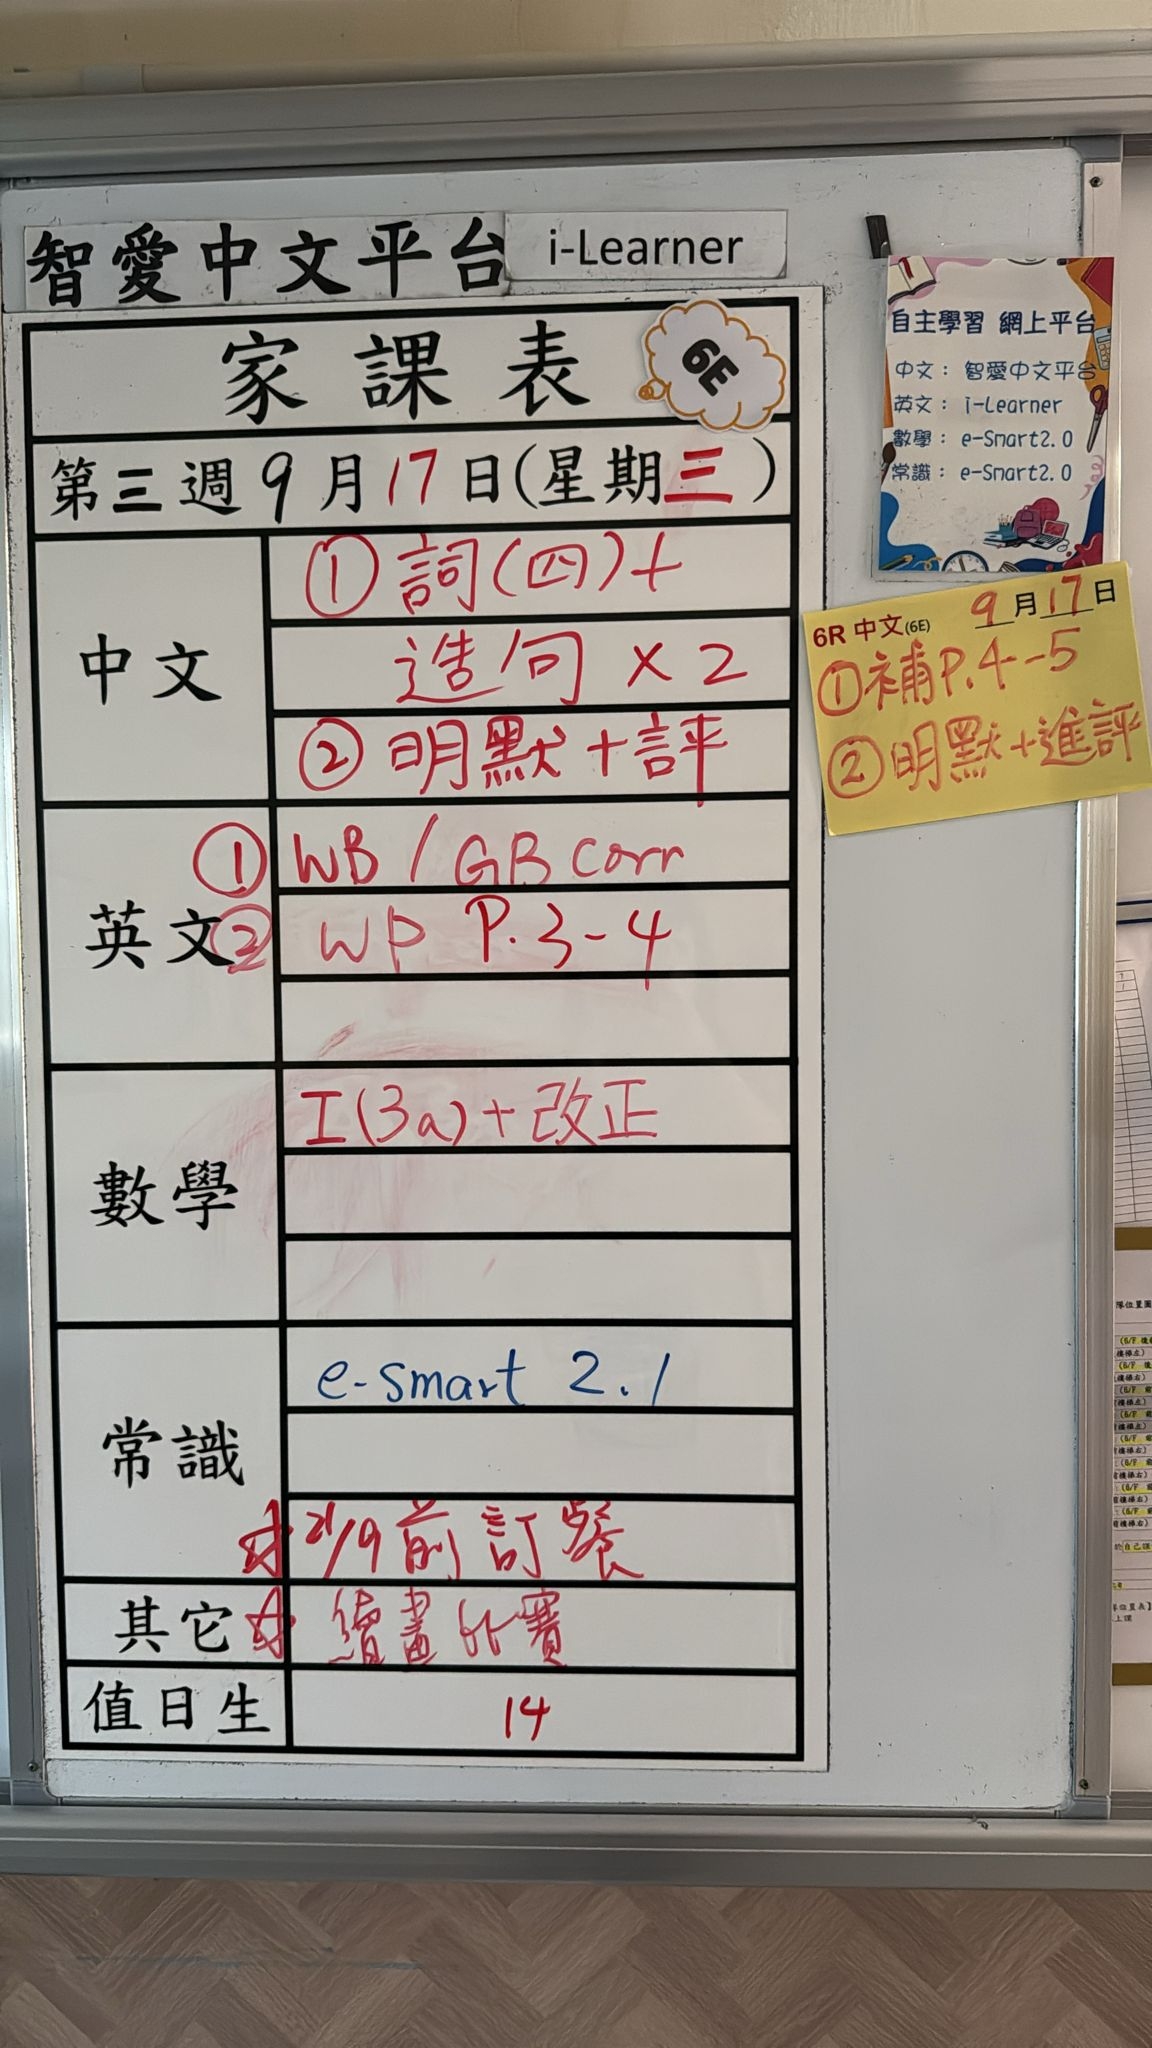 智愛中文平台 i-Learner
家課表 6E
第三週9月17日(星期三)
中文
①詞(四)+
造句×2
②明默+評
英文
① WB / GB corr
② WP P.3-4
數學
I(3a)+改正
常識
e-smart 2.1
☆21/9前訂餐
其它
☆繪畫比賽
值日生
14
自主學習 網上平台
中文：智愛中文平台
英文：i-Learner
數學：e-Smart2.0
常識：e-Smart2.0
6R 中文(6E) 9月17日
①補P.4-5
②明默+進評